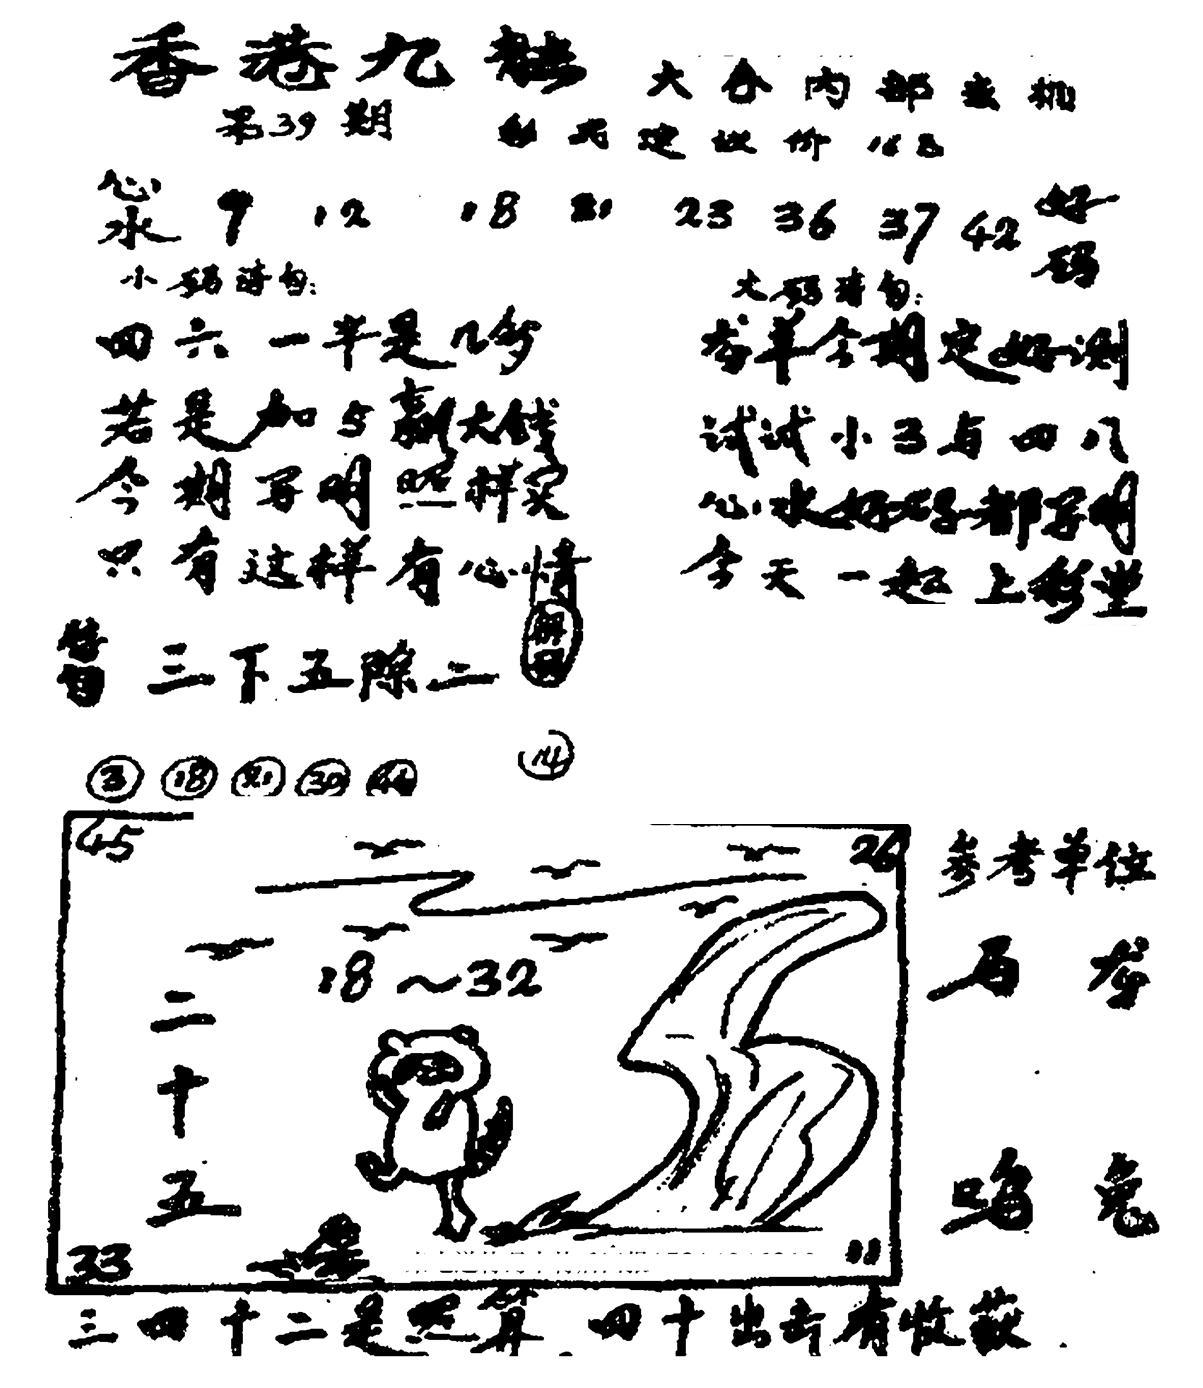 香港九龙
大谷内部玄机
第39期
彩民建议价168
心水 9 12 18 21 23 36 37 42 好码
小码诗句:
四六一半是几多
若是加5赢大钱
今期写明照样买
只有这样有心情
大码诗句:
龙羊今期定好测
试试小3与四八
心水好码都写明
今天一起上彩堂
三下五除二
解码
3 18 21 30 44
14
45
26
18~32
二十五
33
11
参考单位
马 龙
鸡 兔
三四十二是照算 四十出击有收获